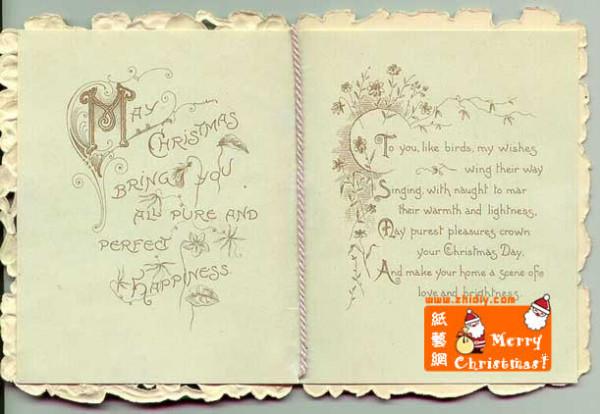 MAY
CHRISTMAS
BRING YOU
ALL PURE AND
PERFECT
HAPPINESS.
To you, like birds, my wishes
wing their way
Singing, with naught to mar
their warmth and lightness,
May purest pleasures crown
your Christmas Day,
And make your home a scene of
love and brightness.
www.zhidiy.com
紙藝網
Merry
Christmas!